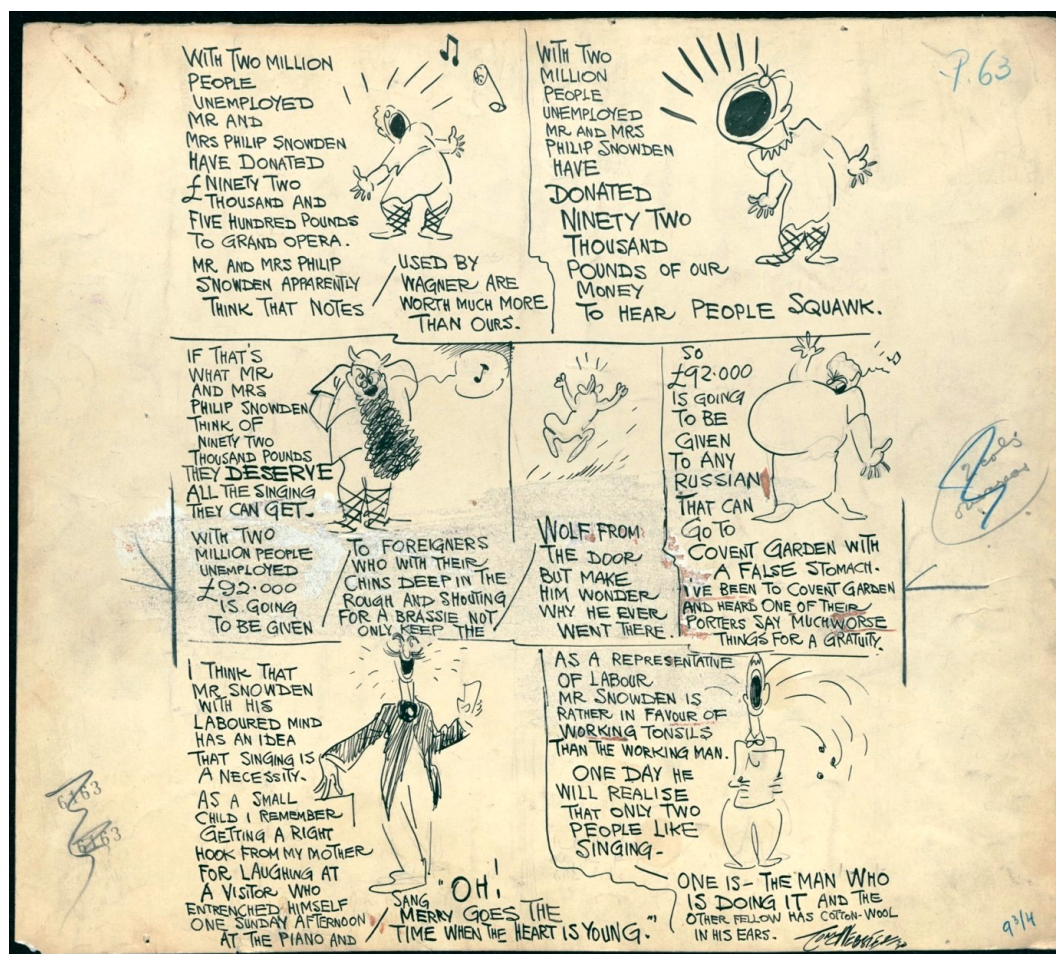 P.63
WITH TWO MILLION
PEOPLE
UNEMPLOYED
MR AND
MRS PHILIP SNOWDEN
HAVE DONATED
£NINETY TWO
THOUSAND AND
FIVE HUNDRED POUNDS
TO GRAND OPERA.
MR AND MRS PHILIP
SNOWDEN APPARENTLY
THINK THAT NOTES
USED BY
WAGNER ARE
WORTH MUCH MORE
THAN OURS.
WITH TWO
MILLION
PEOPLE
UNEMPLOYED
MR AND MRS
PHILIP SNOWDEN
HAVE
DONATED
NINETY TWO
THOUSAND
POUNDS OF OUR
MONEY
TO HEAR PEOPLE SQUAWK.
IF THAT'S
WHAT MR
AND MRS
PHILIP SNOWDEN
THINK OF
NINETY TWO
THOUSAND POUNDS
THEY DESERVE
ALL THE SINGING
THEY CAN GET.
WITH TWO
MILLION PEOPLE
UNEMPLOYED
£92.000
IS GOING
TO BE GIVEN
TO FOREIGNERS
WHO WITH THEIR
CHINS DEEP IN THE
ROUGH AND SHOUTING
FOR A BRASSIE NOT
ONLY KEEP THE
WOLF FROM
THE DOOR
BUT MAKE
HIM WONDER
WHY HE EVER
WENT THERE.
SO
£92.000
IS GOING
TO BE
GIVEN
TO ANY
RUSSIAN
THAT CAN
GO TO
COVENT GARDEN WITH
A FALSE STOMACH.
I'VE BEEN TO COVENT GARDEN
AND HEARD ONE OF THEIR
PORTERS SAY MUCH WORSE
THINGS FOR A GRATUITY.
I THINK THAT
MR SNOWDEN
WITH HIS
LABOURED MIND
HAS AN IDEA
THAT SINGING IS
A NECESSITY.
AS A SMALL
CHILD I REMEMBER
GETTING A RIGHT
HOOK FROM MY MOTHER
FOR LAUGHING AT
A VISITOR WHO
ENTRENCHED HIMSELF
ONE SUNDAY AFTERNOON
AT THE PIANO AND
SANG "OH!
MERRY GOES THE
TIME WHEN THE HEART IS YOUNG."!
AS A REPRESENTATIVE
OF LABOUR
MR SNOWDEN IS
RATHER IN FAVOUR OF
WORKING TONSILS
THAN THE WORKING MAN.
ONE DAY HE
WILL REALISE
THAT ONLY TWO
PEOPLE LIKE
SINGING-
ONE IS- THE MAN WHO
IS DOING IT AND THE
OTHER FELLOW HAS COTTON-WOOL
IN HIS EARS.
TOM WEBSTER
6163
6163
9 3/4